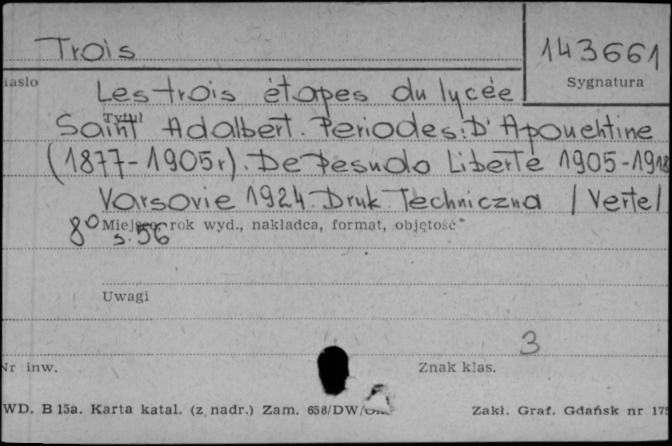 Trois
143661
iasło
Sygnatura
Les trois étapes du lycée
Tytuł
Saint Adalbert. Periodes: D'Apouehtine
(1877-1905r). De Pesudo Liberte 1905-1918
Varsovie 1924. Druk. Techniczna /Verte/
8° Miejsce, rok wyd., nakładca, format, objętość
s. 56
Uwagi
3
Nr inw.
Znak klas.
WD. B 15a. Karta katal. (z nadr.) Zam. 658/DW/
Zakł. Graf. Gdańsk nr 175